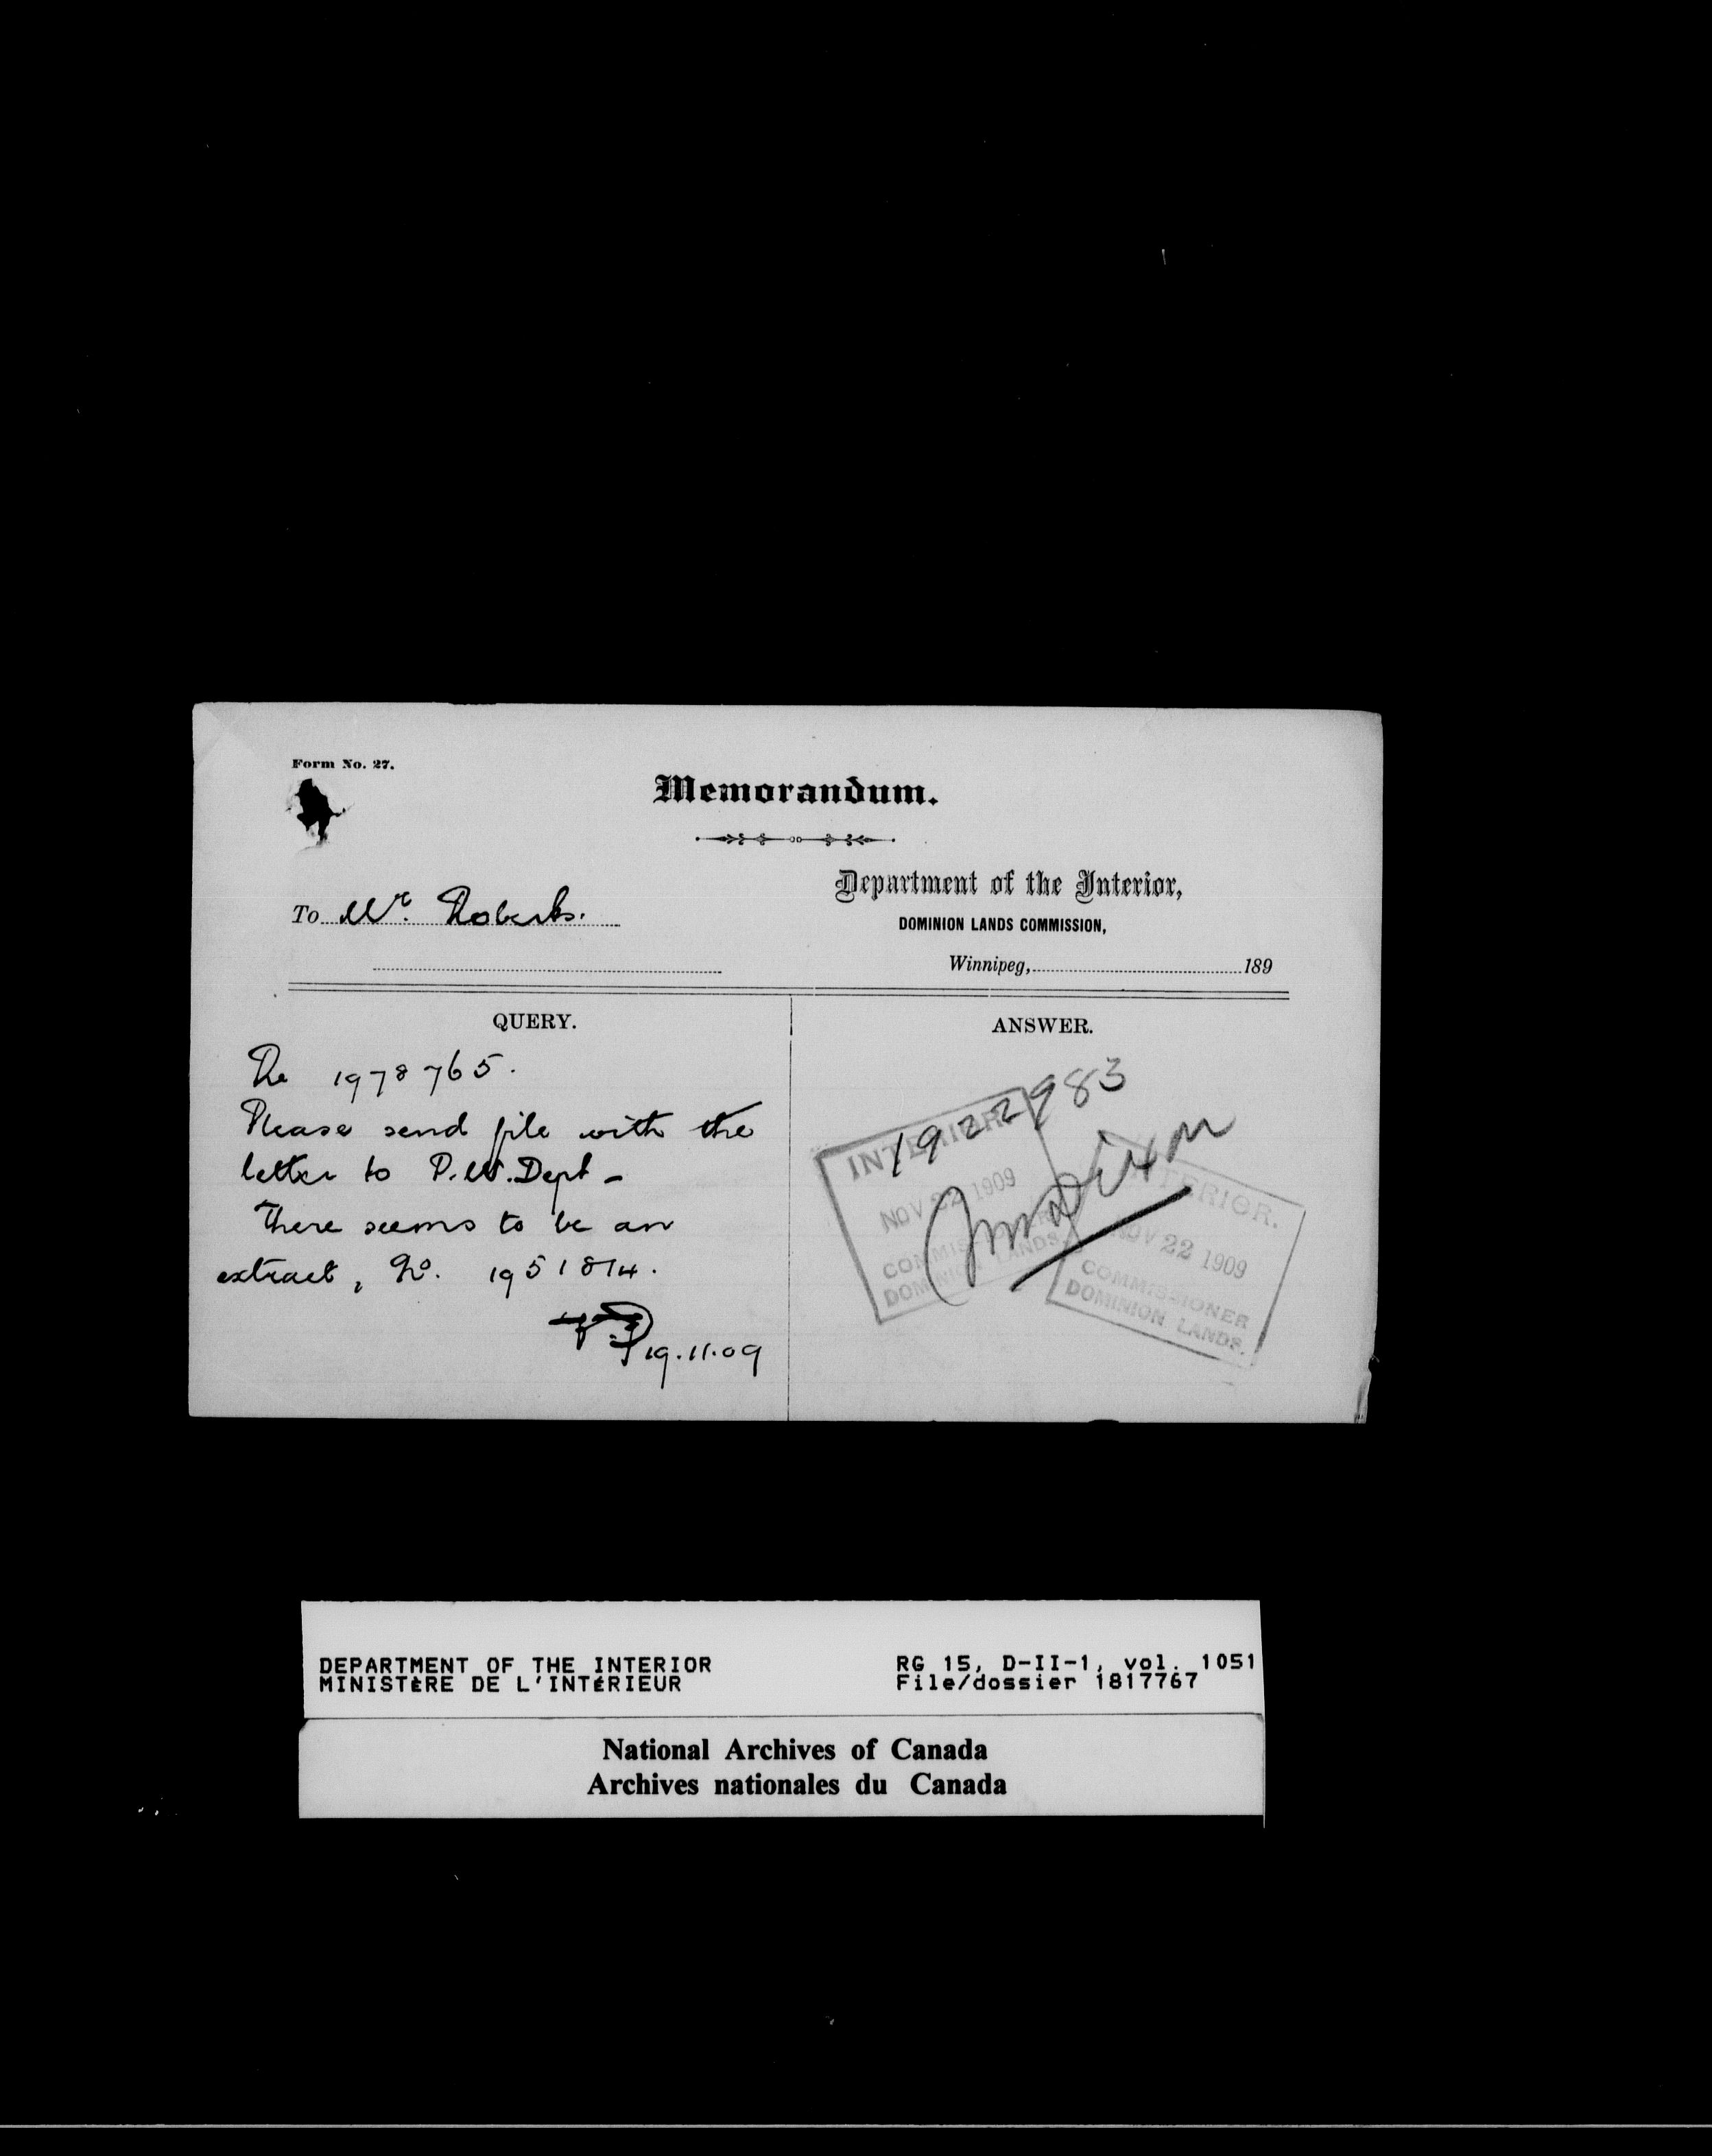 Form No. 27.
Memorandum.
To Mr. Roberts.
Department of the Interior,
DOMINION LANDS COMMISSION,
Winnipeg, 189
QUERY.
Re 1978765.
Please send file with the
letter to P.W. Dept -
There seems to be an
extract, No. 1951814.
19.11.09
ANSWER.
1922983
INTERIOR
NOV 22 1909
COMMISSIONER
DOMINION LANDS.
INTERIOR.
NOV 22 1909
COMMISSIONER
DOMINION LANDS.
DEPARTMENT OF THE INTERIOR
MINISTÈRE DE L'INTÉRIEUR
RG 15, D-II-1, vol. 1051
File/dossier 1817767
National Archives of Canada
Archives nationales du Canada